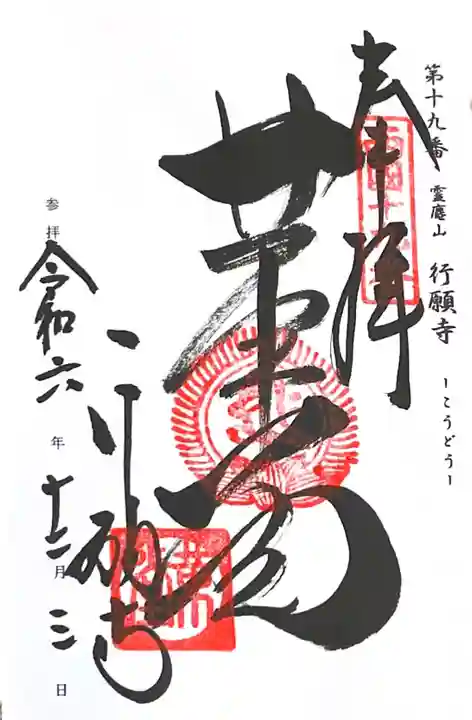 第十九番 霊麀山 行願寺 ーこうどうー
奉拝
革堂
行願寺
参拝
令和六年十二月三日